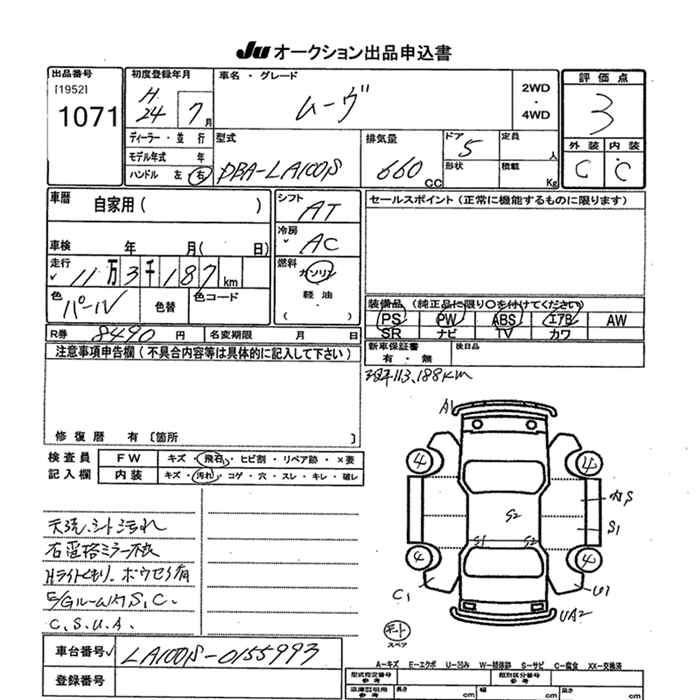 Ju オークション出品申込書
出品番号
[1952]
1071
初度登録年月
H
24 7月
車名・グレード
ムーヴ
2WD
・
4WD
評価点
3
外装 内装
C C
ディーラー・並行
モデル年式 年
ハンドル 左 右
型式
DBA-LA100S
排気量
660
CC
ドア 5
形状
定員 人
積載 Kg
車歴
自家用( )
車検 年 月( 日)
走行
11万3千187km
色 パール
色替
色コード
シフト
AT
冷房
AC
燃料
ガソリン
軽油・
( )
セールスポイント(正常に機能するものに限ります)
装備品(純正品に限り○を付けてください)
PS PW ABS エアB AW
SR ナビ TV カワ
R券 8490円
名変期限 月 日
新車保証書
有・無
後日品
注意事項申告欄(不具合内容等は具体的に記入して下さい)
113,188KM
修復歴 有 〔箇所 〕
検査員
記入欄
FW キズ・飛石・ヒビ割・リペア跡・×要
内装 キズ・汚れ・コゲ・穴・スレ・キレ・破レ
天洗.シート汚れ
右電格ミラー不良
Hライトくもり.ボウセイ有
E/GルームS.C.
C.S.U.A.
A1
4
4
S2
S1
S2
S1
4
4
C1
U1
UA2
スペア
車台番号
LA100S-0155993
登録番号
A-キズ E-エクボ U-凹み W-補修跡 S-サビ C-腐食 XX-交換済
型式指定番号
参考
類別区分番号
参考
車庫証明用
参考
長さ cm
幅 cm
高さ cm